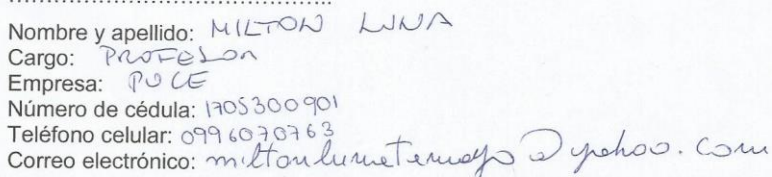 Nombre y apellido: MILTON LUNA
Cargo: PROFESOR
Empresa: PUCE
Número de cédula: 1705300901
Teléfono celular: 0996070763
Correo electrónico: miltonlunatamayo@yahoo.com